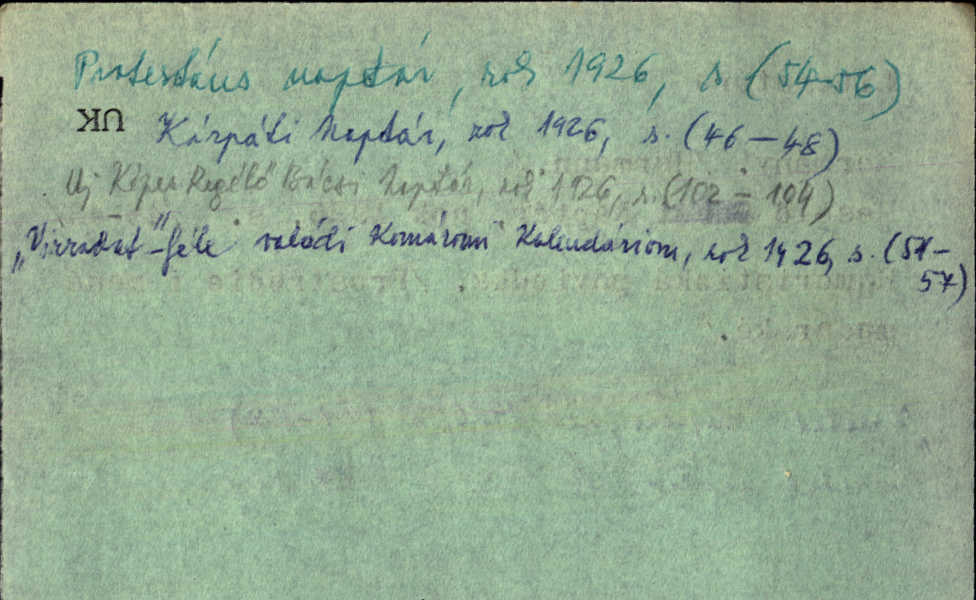 Protestáns naptár, rok 1926, s. (54-56)
UK Kárpáti Naptár, rok 1926, s. (46-48)
Uj Képes Regélő Bácsi Naptár, rok 1926, s. (102-104)
„Virradat"-féle valódi Komáromi Kalendáriom, rok 1926, s. (54-
57)